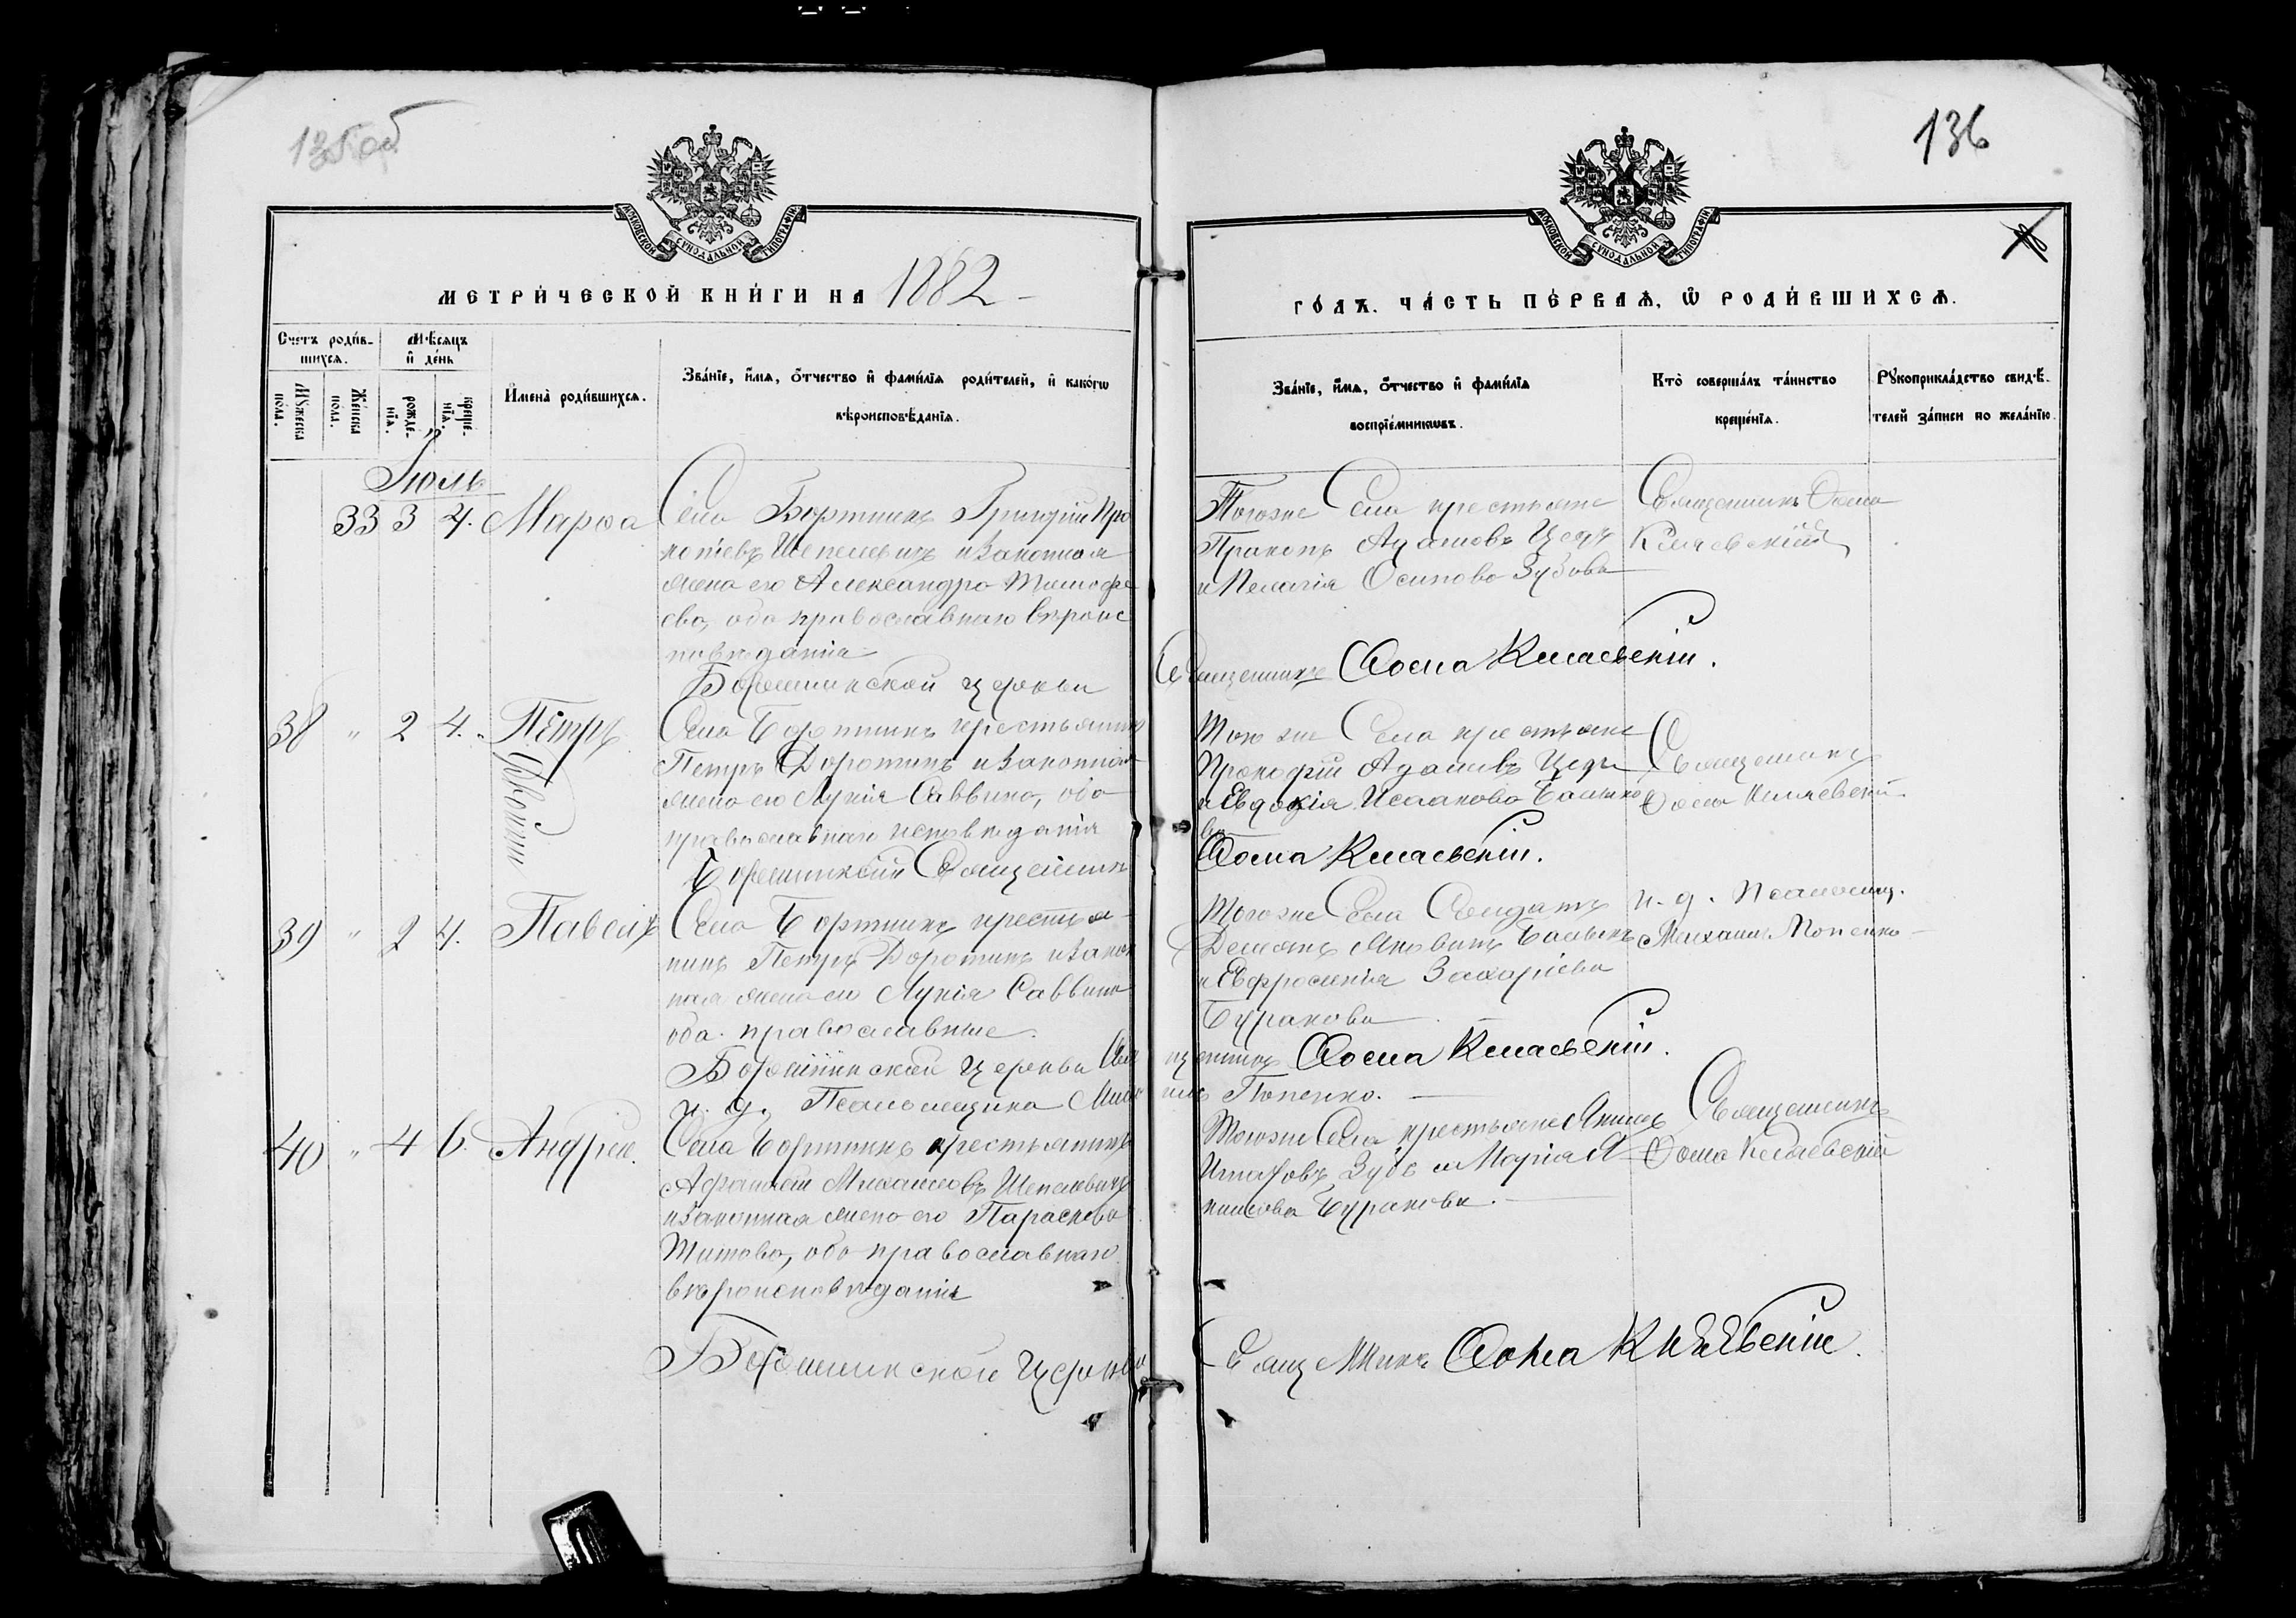 135 об
136
МОСКОВСКОЙ СѴНОДАЛЬНОЙ ТИПОГРАФІИ
МОСКОВСКОЙ СѴНОДАЛЬНОЙ ТИПОГРАФІИ
МЕТРИ́ЧЕСКОЙ КНИ́ГИ НА 1882
ГО́ДЪ. ЧА́СТЬ ПЕ́РВАѦ, Ѡ҆ РОДИ́ВШИХСѦ.
Сче́тъ роди́в-
шихсѧ.
Мѣ́сѧцъ
и҆ де́нь
Мꙋ́жеска
по́ла.
Же́нска
по́ла.
рожде́-
нїѧ.
креще́-
нїѧ.
И҆мена̀ роди́вшихсѧ.
Зва́нїе, и҆́мѧ, ѻ҆́тчество и҆ фами́лїѧ роди́телей, и҆ како́гѡ
вѣроисповѣ́данїѧ.
Зва́нїе, и҆́мѧ, ѻ҆́тчество и҆ фами́лїѧ
воспрїе́мникѡвъ.
Кто̀ соверша́лъ та́инство
креще́нїѧ.
Рꙋкоприкла́дство свидѣ́-
телей за́писи по жела́нїю.
Іюль
33 3 4. Марѳа
Села Бортникъ Григорій Про
копіевъ Шепелевичъ и законная
жена его Александра Тимофе
ева, оба православнаго вѣроис
повѣданія
Того же Села крестьяне
Прокопъ Адамовъ Цедъ
и Пелагія Осипова Зубова
Священникъ Ѳома
Киаевскій
Бортникской церкви
Священникъ Ѳома Киаевскій.
38 " 2 4. Петръ
Двойни
Села Бортникъ крестьянинъ
Петръ Доротикъ и законная
жена его Лукія Саввина, оба
православнаго исповѣданія
Того же Села крестьяне
Прокофій Адамовъ Цедъ
и Евдокія Исаакова Балыко
ва
Священникъ
Ѳома Киаевскій.
Бортникскій Священникъ
Ѳома Киаевскій.
39 " 2 4. Павелъ
Села Бортникъ крестья-
нинъ Петръ Доротикъ и закон
ная жена его Лукія Саввина
оба православные.
Того же Села Солдатъ
Демьянъ Яковинъ Балыкъ
и Евфросинія Захаріева
Буракова
и. д. Псаломщ.
Михаилъ Попенко
Бортникской церкви Свя
щенникъ Ѳома Киаевскій.
и. д. Псаломщика Миха
илъ Попенко.
40 " 4 6. Андрей.
Села Бортникъ крестьянинъ
Афанасій Михаиловъ Шепелевичъ
и законная жена его Параскева
Титова, оба православнаго
вѣроисповѣданія
Того же Села крестьяне Якимъ
Игнатовъ Зубъ и Марія Я-
кимова Буракова.
Священникъ
Ѳома Киаевскій
Бортникской церкви
Священникъ Ѳома Киаевскій.